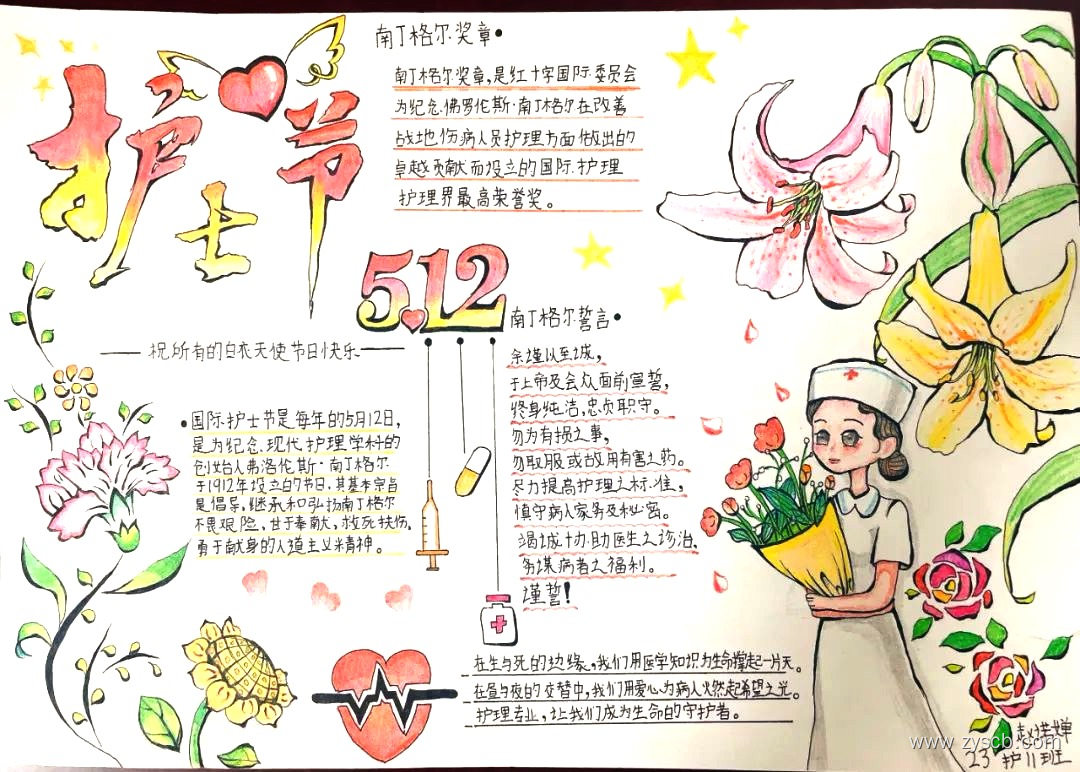 护士节
南丁格尔奖章
南丁格尔奖章,是红十字国际委员会
为纪念佛罗伦斯·南丁格尔在改善
战地伤病人员护理方面做出的
卓越贡献而设立的国际护理
护理界最高荣誉奖。
5.12
祝所有的白衣天使节日快乐
国际护士节是每年的5月12日,
是为纪念现代护理学科的
创始人弗洛伦斯·南丁格尔
于1912年设立的节日,其基本宗旨
是倡导、继承和弘扬南丁格尔
不畏艰险,甘于奉献,救死扶伤,
勇于献身的人道主义精神。
南丁格尔誓言
余谨以至诚,
于上帝及会众面前宣誓,
终身纯洁,忠贞职守。
勿为有损之事,
勿取服或故用有害之药。
尽力提高护理之标准,
慎守病人家务及秘密。
竭诚协助医生之诊治,
务谋病者之福利。
谨誓!
在生与死的边缘,我们用医学知识为生命撑起一片天。
在昼与夜的交替中,我们用爱心为病人燃起希望之光。
护理专业,让我们成为生命的守护者。
23护11班
www.zyscb.com